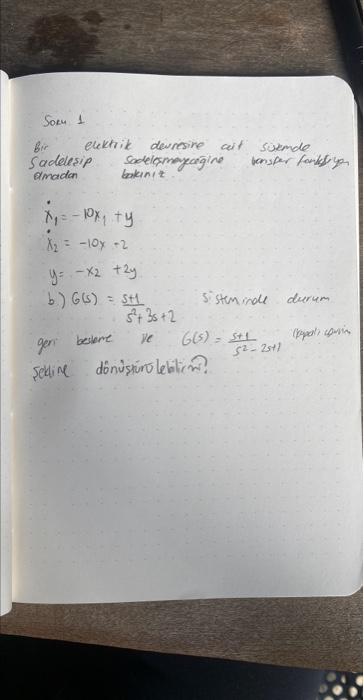 Soru 1
Bir elektrik devresine ait sistemde
Sadeleşip Sadeleşmeyeceğine transfer fonksiyon
olmadan bakınız.
ẋ₁ = -10x₁ + y
ẋ₂ = -10x -2
y = -x₂ + 2y
b) G(s) = s+1 / s²+3s+2 Sisteminde durum
geri besleme ile G(s) = s+1 / s²-2s+1 (kapalı çevrim
şekline dönüştürülebilir mi?